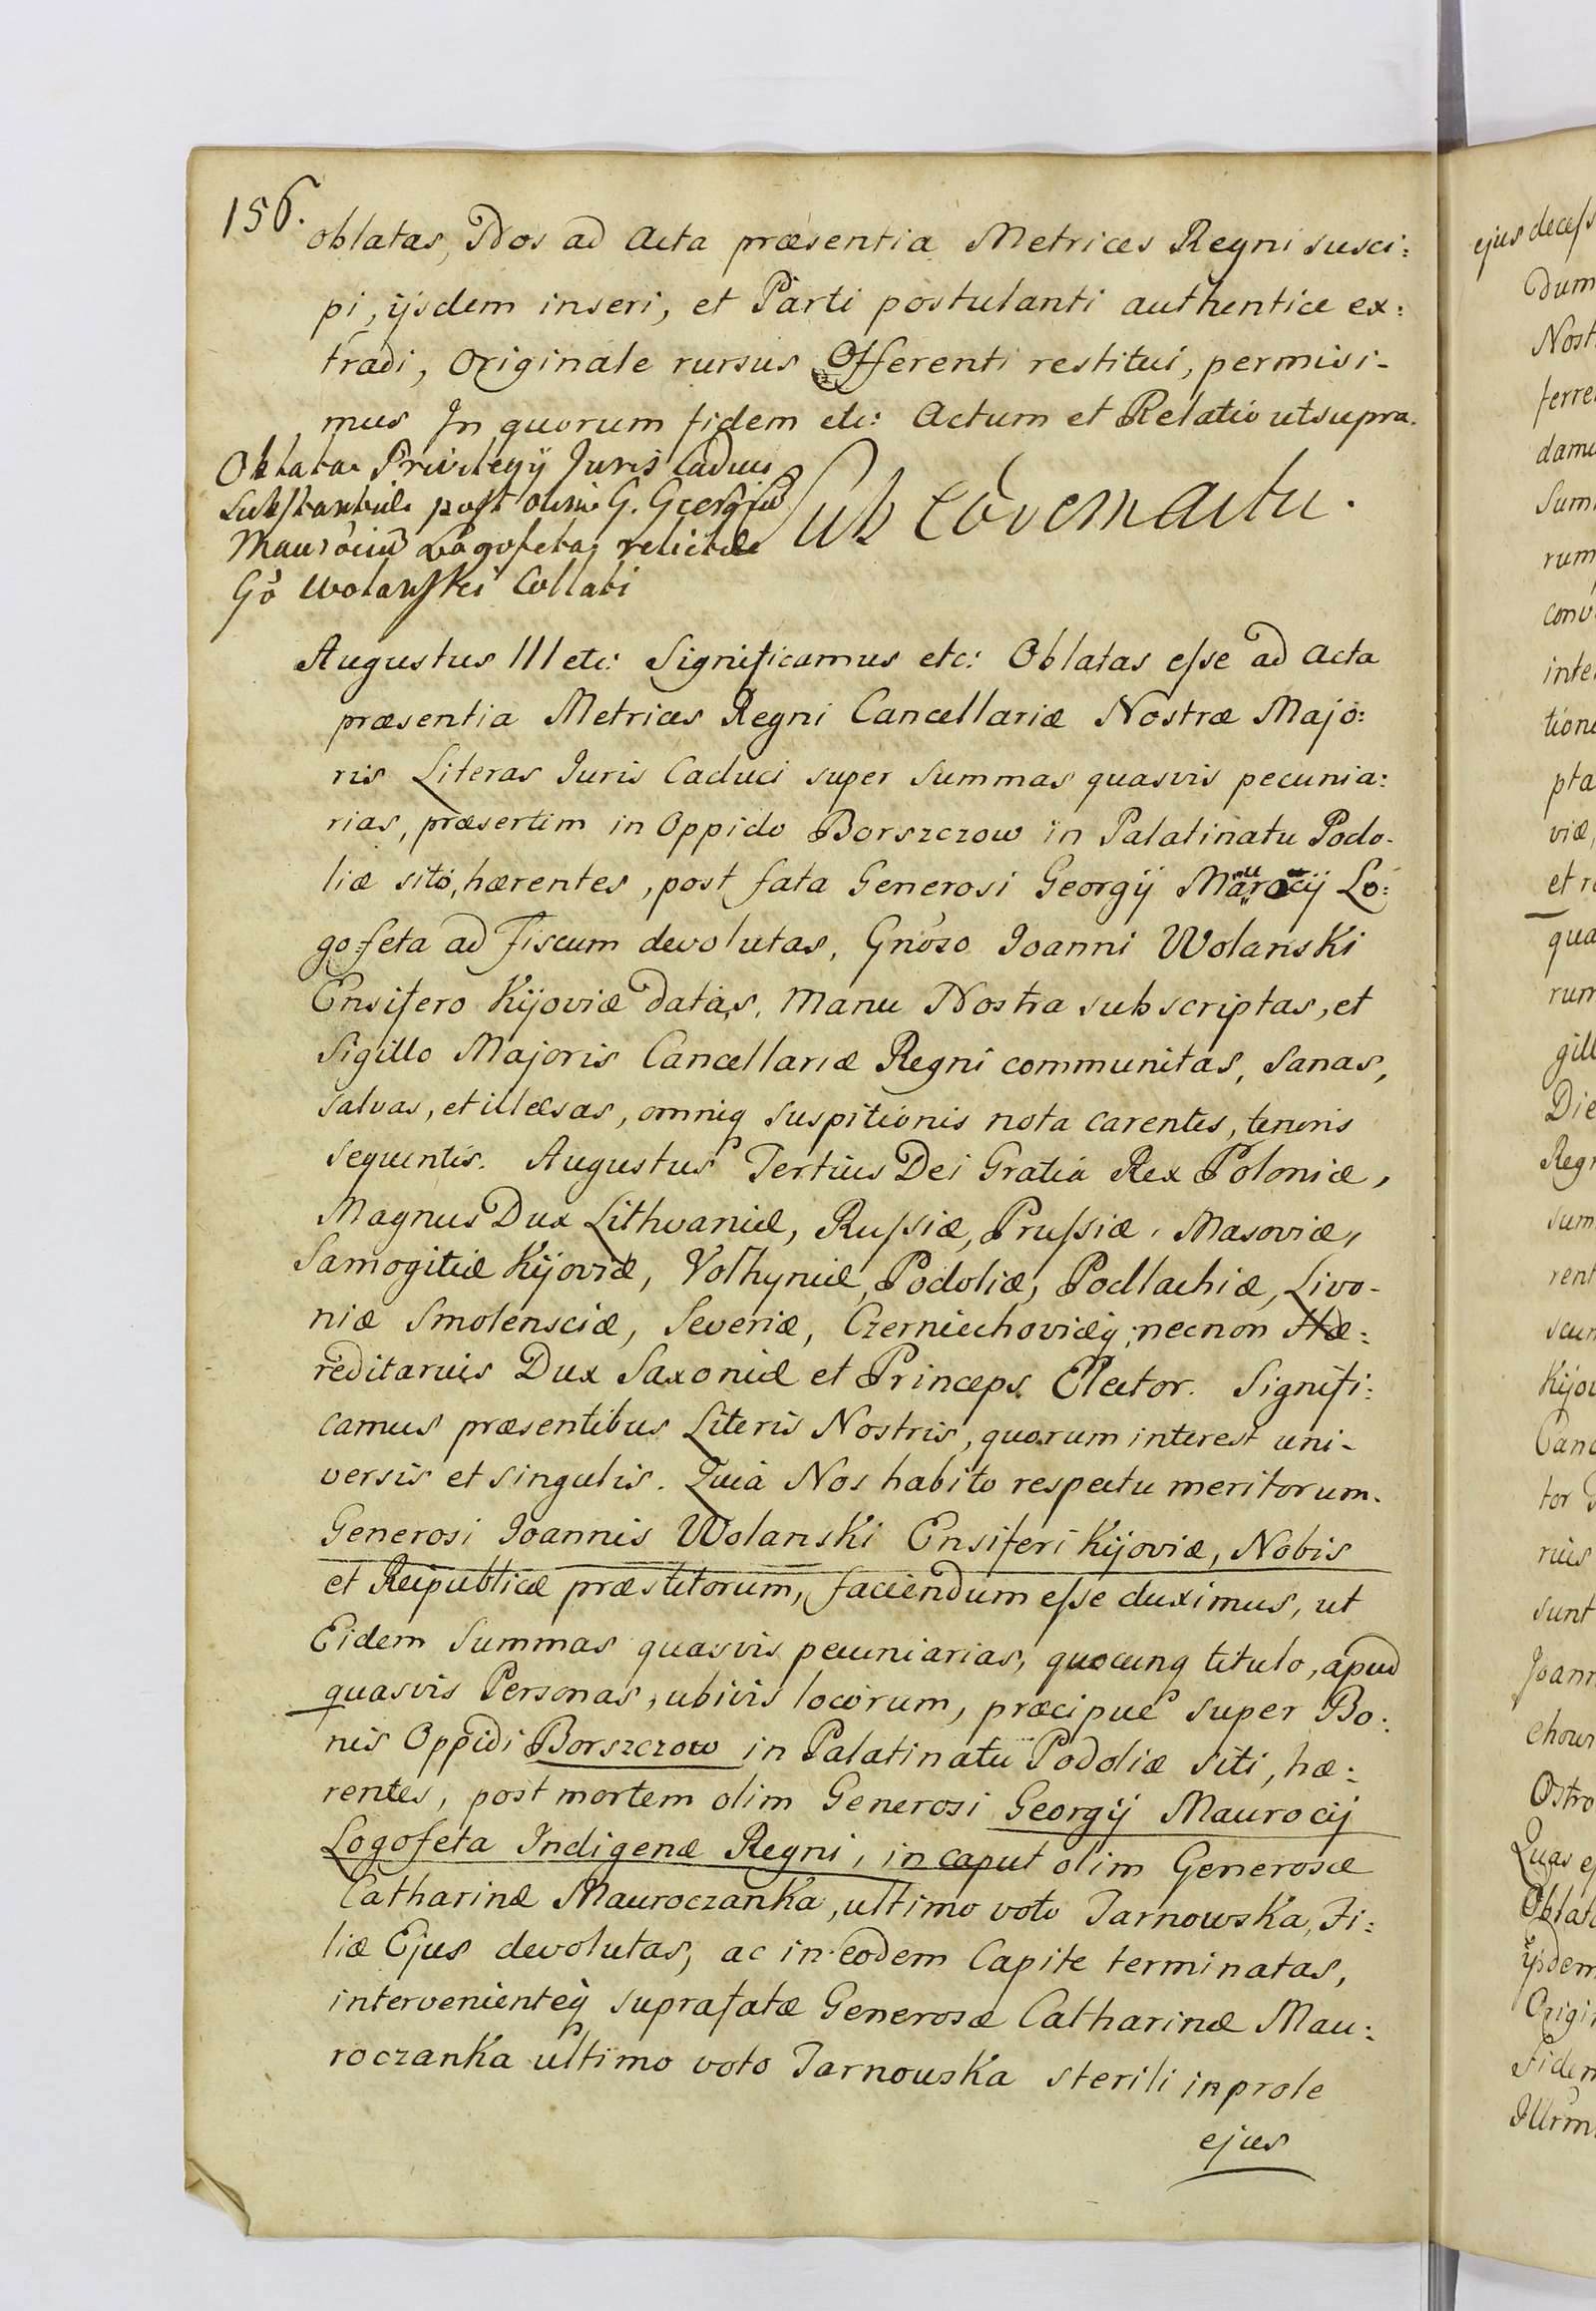 156.
oblatas, Nos ad Acta præsentia Metrices Regni susci:
pi, ijsdem inseri, et Parti postulanti authentice ex:
tradi, Originale rursus Offerenti restitui, permisi-
mus In quorum fidem etc: Actum et Relatio ut supra.
Oblata Privilegij Juris Caduci
Substantiæ post olim G. Georgiũ
Maurociũ Logofeta, relictæ
Gõ Wolanski Collati
Sub eodem actu.
Augustus III etc: Significamus etc: Oblatas eſse ad Acta
præsentia Metrices Regni Cancellariæ Nostræ Majo:
ris Literas Juris Caduci super Summas quasvis pecunia:
rias, præsertim in Oppido Borszczow in Palatinatu Podo-
liæ sito, hærentes, post fata Generosi Georgij Maurocij Lo:
gofeta ad Fiscum devolutas, Gnõso Joanni Wolanski
Ensifero Kijoviæ datas, Manu Nostra subscriptas, et
Sigillo Majoris Cancellariæ Regni communitas, Sanas,
salvas, et illæsas, omniq suspitionis nota carentes, tenoris
sequentis. Augustus Tertius Dei Gratia Rex Poloniæ,
Magnus Dux Lithvaniæ, Ruſsiæ, Pruſsiæ, Masoviæ,
Samogitiæ Kijoviæ, Volhyniæ, Podoliæ, Podlachiæ, Livo-
niæ Smolensciæ, Severiæ, Czerniechoviæq; necnon Hæ:
reditarius Dux Saxoniæ et Princeps Elector. Signifi:
camus præsentibus Literis Nostris, quorum interest uni-
versis et singulis. Quia Nos habito respectu meritorum
Generosi Joannis Wolanski Ensiferi Kijoviæ, Nobis
et Reipublicæ præstitorum, faciendum eſse duximus, ut
Eidem Summas quasvis pecuniarias, quocunq titulo, apud
quasvis Personas, ubivis locorum, præcipue super Bo:
nis Oppidi Borszczow in Palatinatu Podoliæ siti, hæ:
rentes, post mortem olim Generosi Georgij Maurocij
Logofeta Indigenæ Regni, in caput olim Generosæ
Catharinæ Mauroczanka, ultimo voto Tarnowska, Fi:
liæ Ejus devolutas, ac in eodem Capite terminatas,
intervenienteq suprafatæ Generosæ Catharinæ Mau:
roczanka ultimo voto Tarnouska sterili in prole
ejus
ejus deceſs
dum
Nost
ferre
dam
Sum
rum
conv
inte
tion
pta
viæ,
et r
qua
rum
gill
Die
Regn
sum
rent
scun
Kijov
Canc
tor
rius
sunt
Joann
chow
Ostro
Quas e
Oblat
ijsdem
Origi
Fidem
Illrm